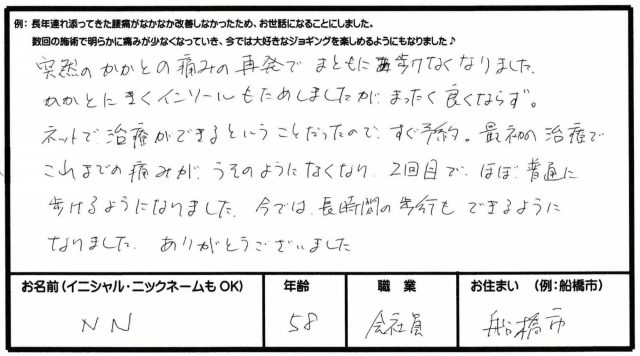 例：長年連れ添ってきた腰痛がなかなか改善しなかったため、お世話になることにしました。
数回の施術で明らかに痛みが少なくなっていき、今では大好きなジョギングを楽しめるようにもなりました♪
突然のかかとの痛みの再発でまともに歩けなくなりました、
かかとにきくインソールもためしましたがまったく良くならず。
ネットで治療ができるということだったので、すぐ予約。最初の治療で
これまでの痛みが、うそのようになくなり、2回目で、ほぼ普通に
歩けるようになりました、今では、長時間の歩行もできるように
なりました、ありがとうございました
お名前（イニシャル・ニックネームも OK） 年齢 職 業 お住まい （例：船橋市）
NN 58 会社員 船橋市